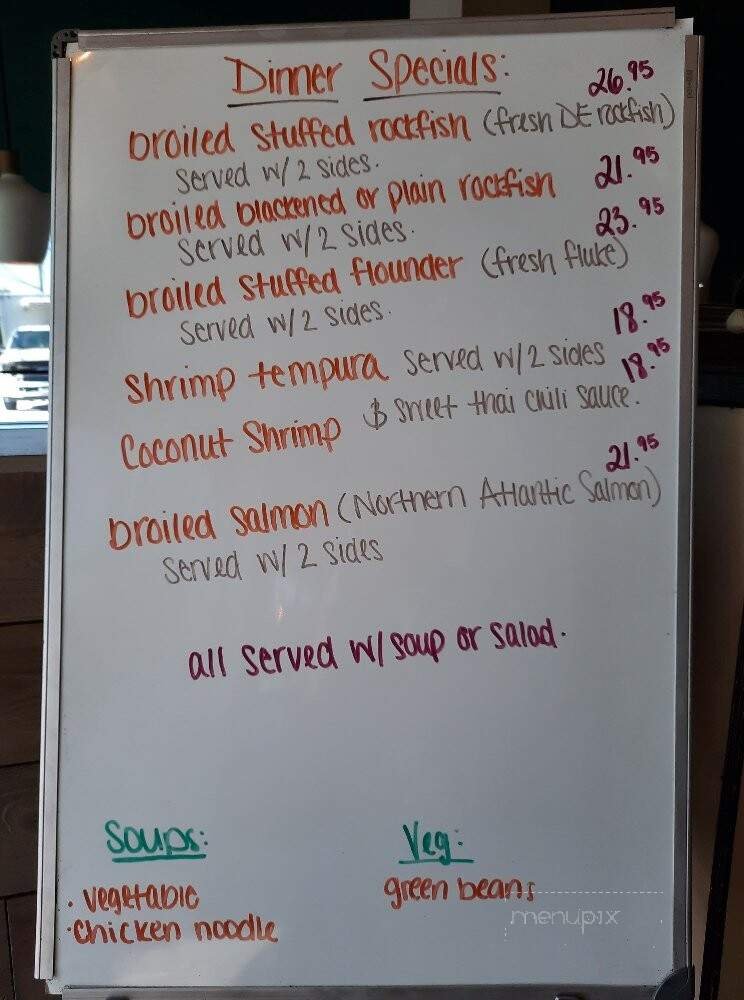 Dinner Specials:
26.95
broiled stuffed rockfish (fresh DE rockfish)
served w/ 2 sides.
21.95
broiled blackened or plain rockfish
served w/ 2 sides.
23.95
broiled stuffed flounder (fresh fluke)
served w/ 2 sides.
18.95
shrimp tempura served w/ 2 sides
18.95
Coconut Shrimp & sweet thai chili sauce.
21.95
broiled salmon (Northern Atlantic Salmon)
served w/ 2 sides
all served w/ soup or salad.
Soups:
Veg:
• vegetable
green beans
• chicken noodle
menupix